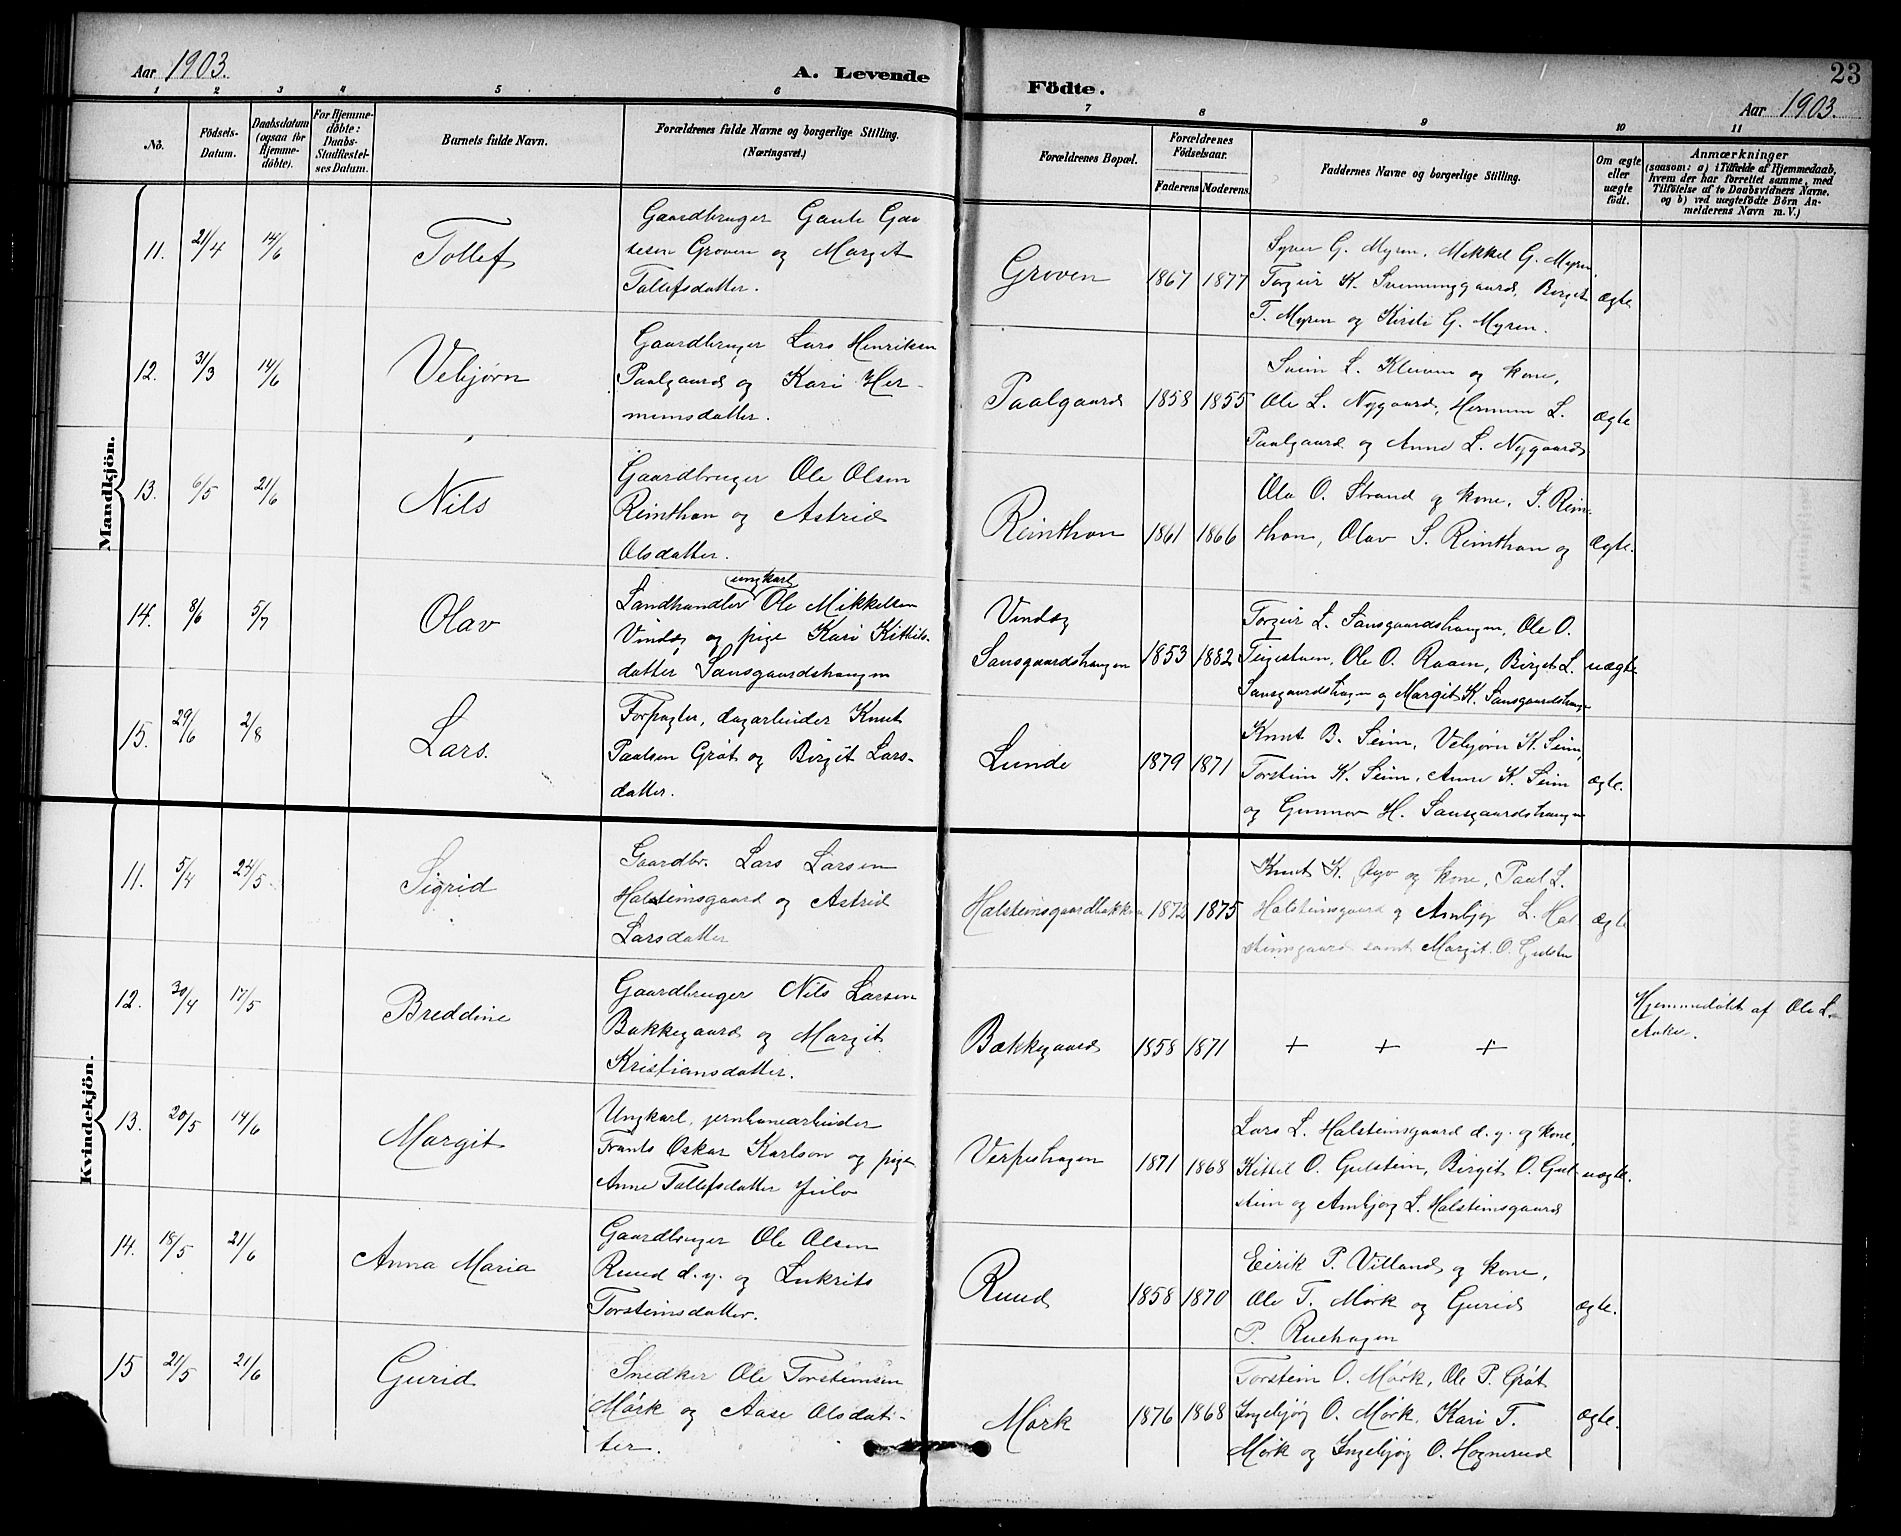 Aar 1903.
A. Levende
Födte.
23
Aar 1903.
1 2 3 4 5 6 7 8 9 10 11
No.
Födsels-
Datum.
Daabsdatum
(ogsaa for
Hjemme-
döbte).
For Hjemme-
döbte:
Daabs-
Stadfæstel-
ses Datum.
Barnets fulde Navn.
Forældrenes fulde Navne og borgerlige Stilling.
(Næringsvei.)
Forældrenes Bopæl.
Forældrenes
Födselsaar.
Faderens. Moderens.
Faddernes Navne og borgerlige Stilling.
Om ægte
eller
uægte
født.
Anmærkninger
(saasom: a) i Tilfælde af Hjemmedaab,
hvem der har forrettet samme, med
Tilføielse af to Daabsvidners Navne.
og b) ved uægtefødte Börn An-
melderens Navn m. V.)
Mandkjön.
11. 21/4 14/6 Tollef
Gaardbruger Gaute Gau
tesen Groven og Margit
Tollefsdatter.
Groven 1867 1877
Syver G. Myren, Mikkel G. Myren,
Torgeir K. Svenninggaard, Birget
T. Myren og Kirsti G. Myren.
ægte
12. 31/3 14/6 Vebjørn
Gaardbruger Lars Henriksen
Paalgaard og Kari Her-
mensdatter.
Paalgaard 1858 1855
Svein L. Kleiven og kone,
Ole L. Nygaard, Hermun L.
Paalgaard og Anne L. Nygaard
ægte
13. 6/5 21/6 Nils
Gaardbruger Ole Olsen
Reinthon og Astrid
Olsdatter.
Reinthon 1861 1866
Ola O. Strand og kone, S. Rein-
thon, Olav S. Reinthon og
ægte.
14. 8/6 5/7 Olav
ungkarl
Landhandler Ole Mikkelsen
Vindeg og pige Kari Kittils-
datter Sansgaardshaugen
Vindeg
Sansgaardshaugen 1853 1882
Torgeir L. Sansgaardshaugen, Ole O.
Teigestuen, Ole O. Raaen, Birget L.
Sansgaardshagen og Margit K. Sansgaardshaug
uægte
15. 29/6 2/8 Lars.
Forpagter, dagarbeider Knut
Paulsen Gröt og Birgit Lars-
datter.
Lunde 1879 1871
Knut B. Seim, Vebjørn K. Seim,
Torstein K. Seim, Anne K. Seim
og Gunnor H. Sansgaardshaugen
ægte.
Kvindekjön.
11. 5/4 24/5 Sigrid
Gaardbr. Lars Larsen
Halsteinsgaard og Astrid
Larsdatter
Halsteinsgaardbakken 1872 1875
Knut K. Øyo og kone, Paul L.
Halsteinsgaard og Ambjør L. Hal
steinsgaard samt Margit O. Gulsten
ægte
12. 30/4 17/5 Breddine
Gaardbruger Nils Larsen
Bakkegaard og Margit
Kristiansdatter.
Bakkegaard 1858 1871
+ + +
Hjemmedøbt af Ole L.
Anker.
13. 20/5 14/6 Margit
Ungkarl, jernbanearbeider
Frants Oskar Karlson og pige
Anne Tollefsdatter Juvlo
Verpeshagen 1871 1868
Lars L. Halsteinsgaard d.y. og kone,
Kittel O. Gulstein, Birgit O. Gul
stein og Ambjørg L. Halsteinsgaard
uægte.
14. 18/5 21/6 Anna Maria
Gaardbruger Ole Olsen
Ruud d.y. og Lukrits
Torsteinsdatter.
Ruud 1858 1870
Eirik P. Villand og kone,
Ole T. Mørk og Gurid
P. Ruehagen
ægte.
15 21/5 21/6 Gurid
Snedker Ole Torsteinsen
Mørk og Aase Olsdat-
ter.
Mørk 1876 1868
Torstein O. Mørk, Ole P. Gröt
Ingebjør O. Mørk, Kari T.
Mørk og Ingebjør O. Hognerud
ægte.